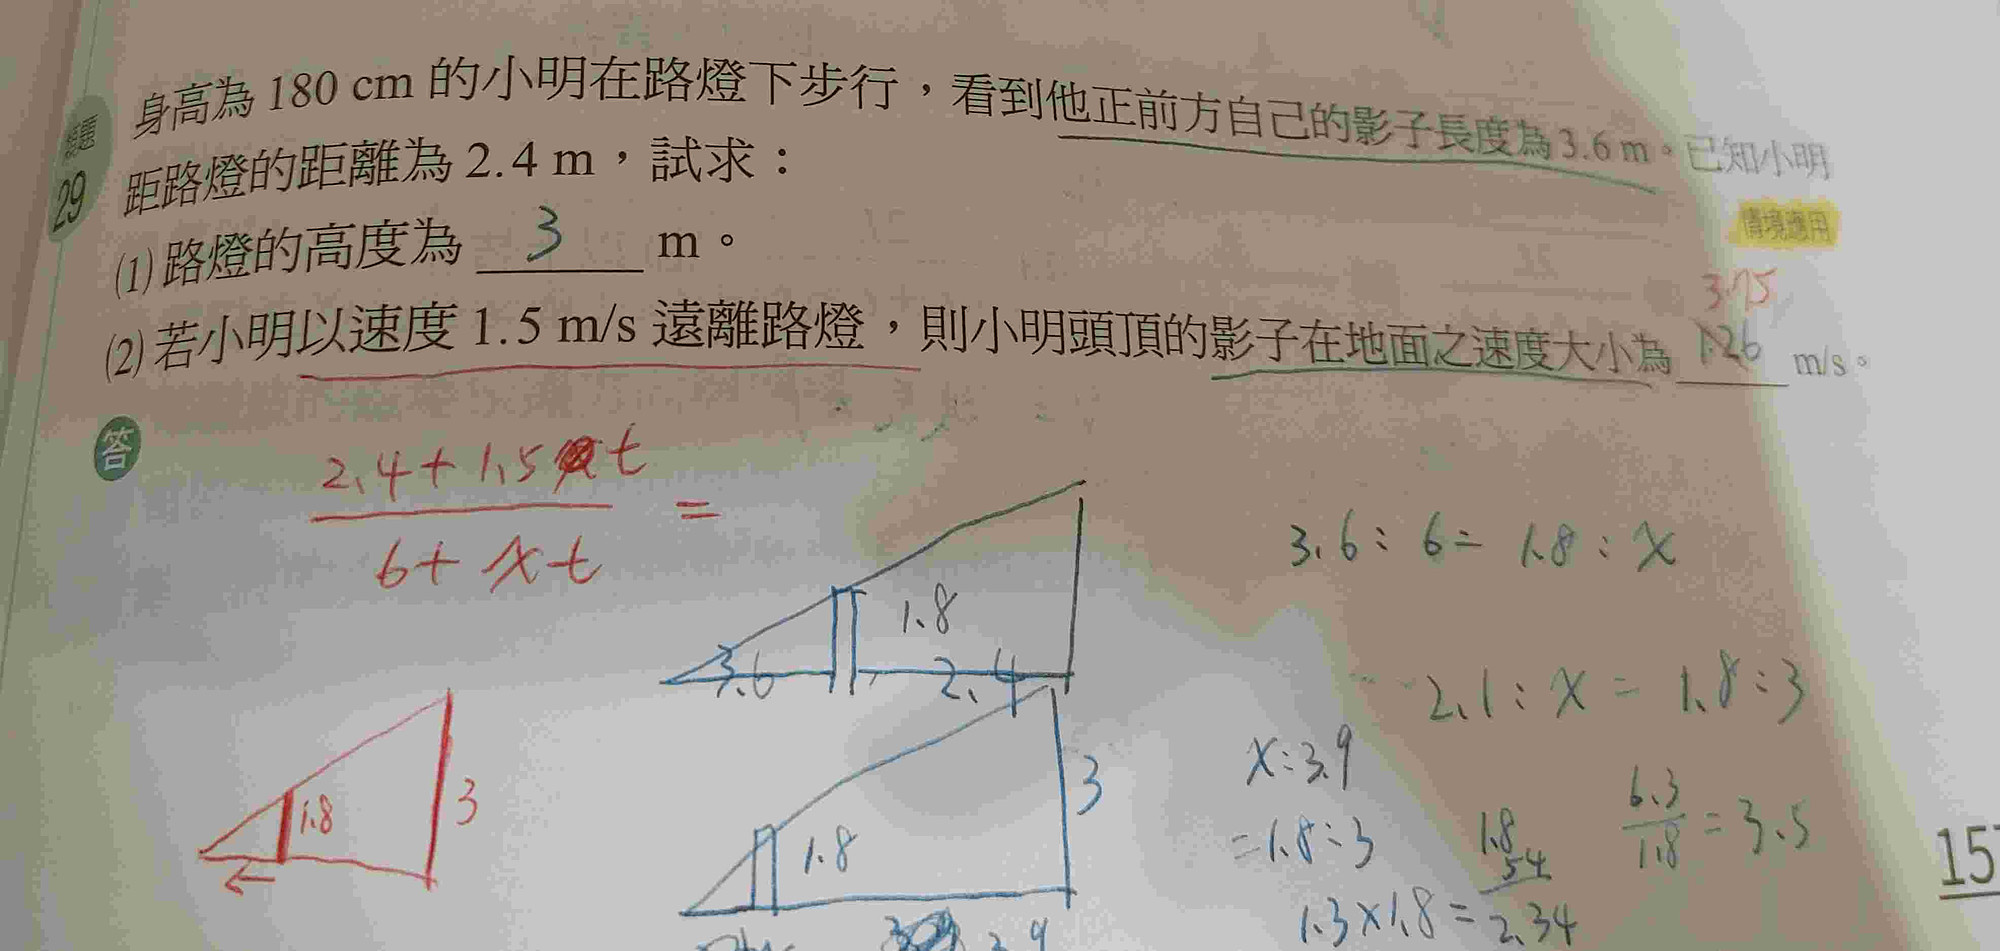 類題
29
身高為 180 cm 的小明在路燈下步行，看到他正前方自己的影子長度為 3.6 m。已知小明
距路燈的距離為 2.4 m，試求：
情境應用
(1) 路燈的高度為 3 m。
3.75
(2) 若小明以速度 1.5 m/s 遠離路燈，則小明頭頂的影子在地面之速度大小為 1.26 m/s。
答
2.4+1.5t
=
6+xt
3.6：6=1.8：x
1.8
3.6
2.4
2.1：x=1.8：3
x：3.9
=1.8：3
1.8
3
1.8
3
1.8
54
2.34
6.3
1.8
=3.5
1.3×1.8=
3.9
15